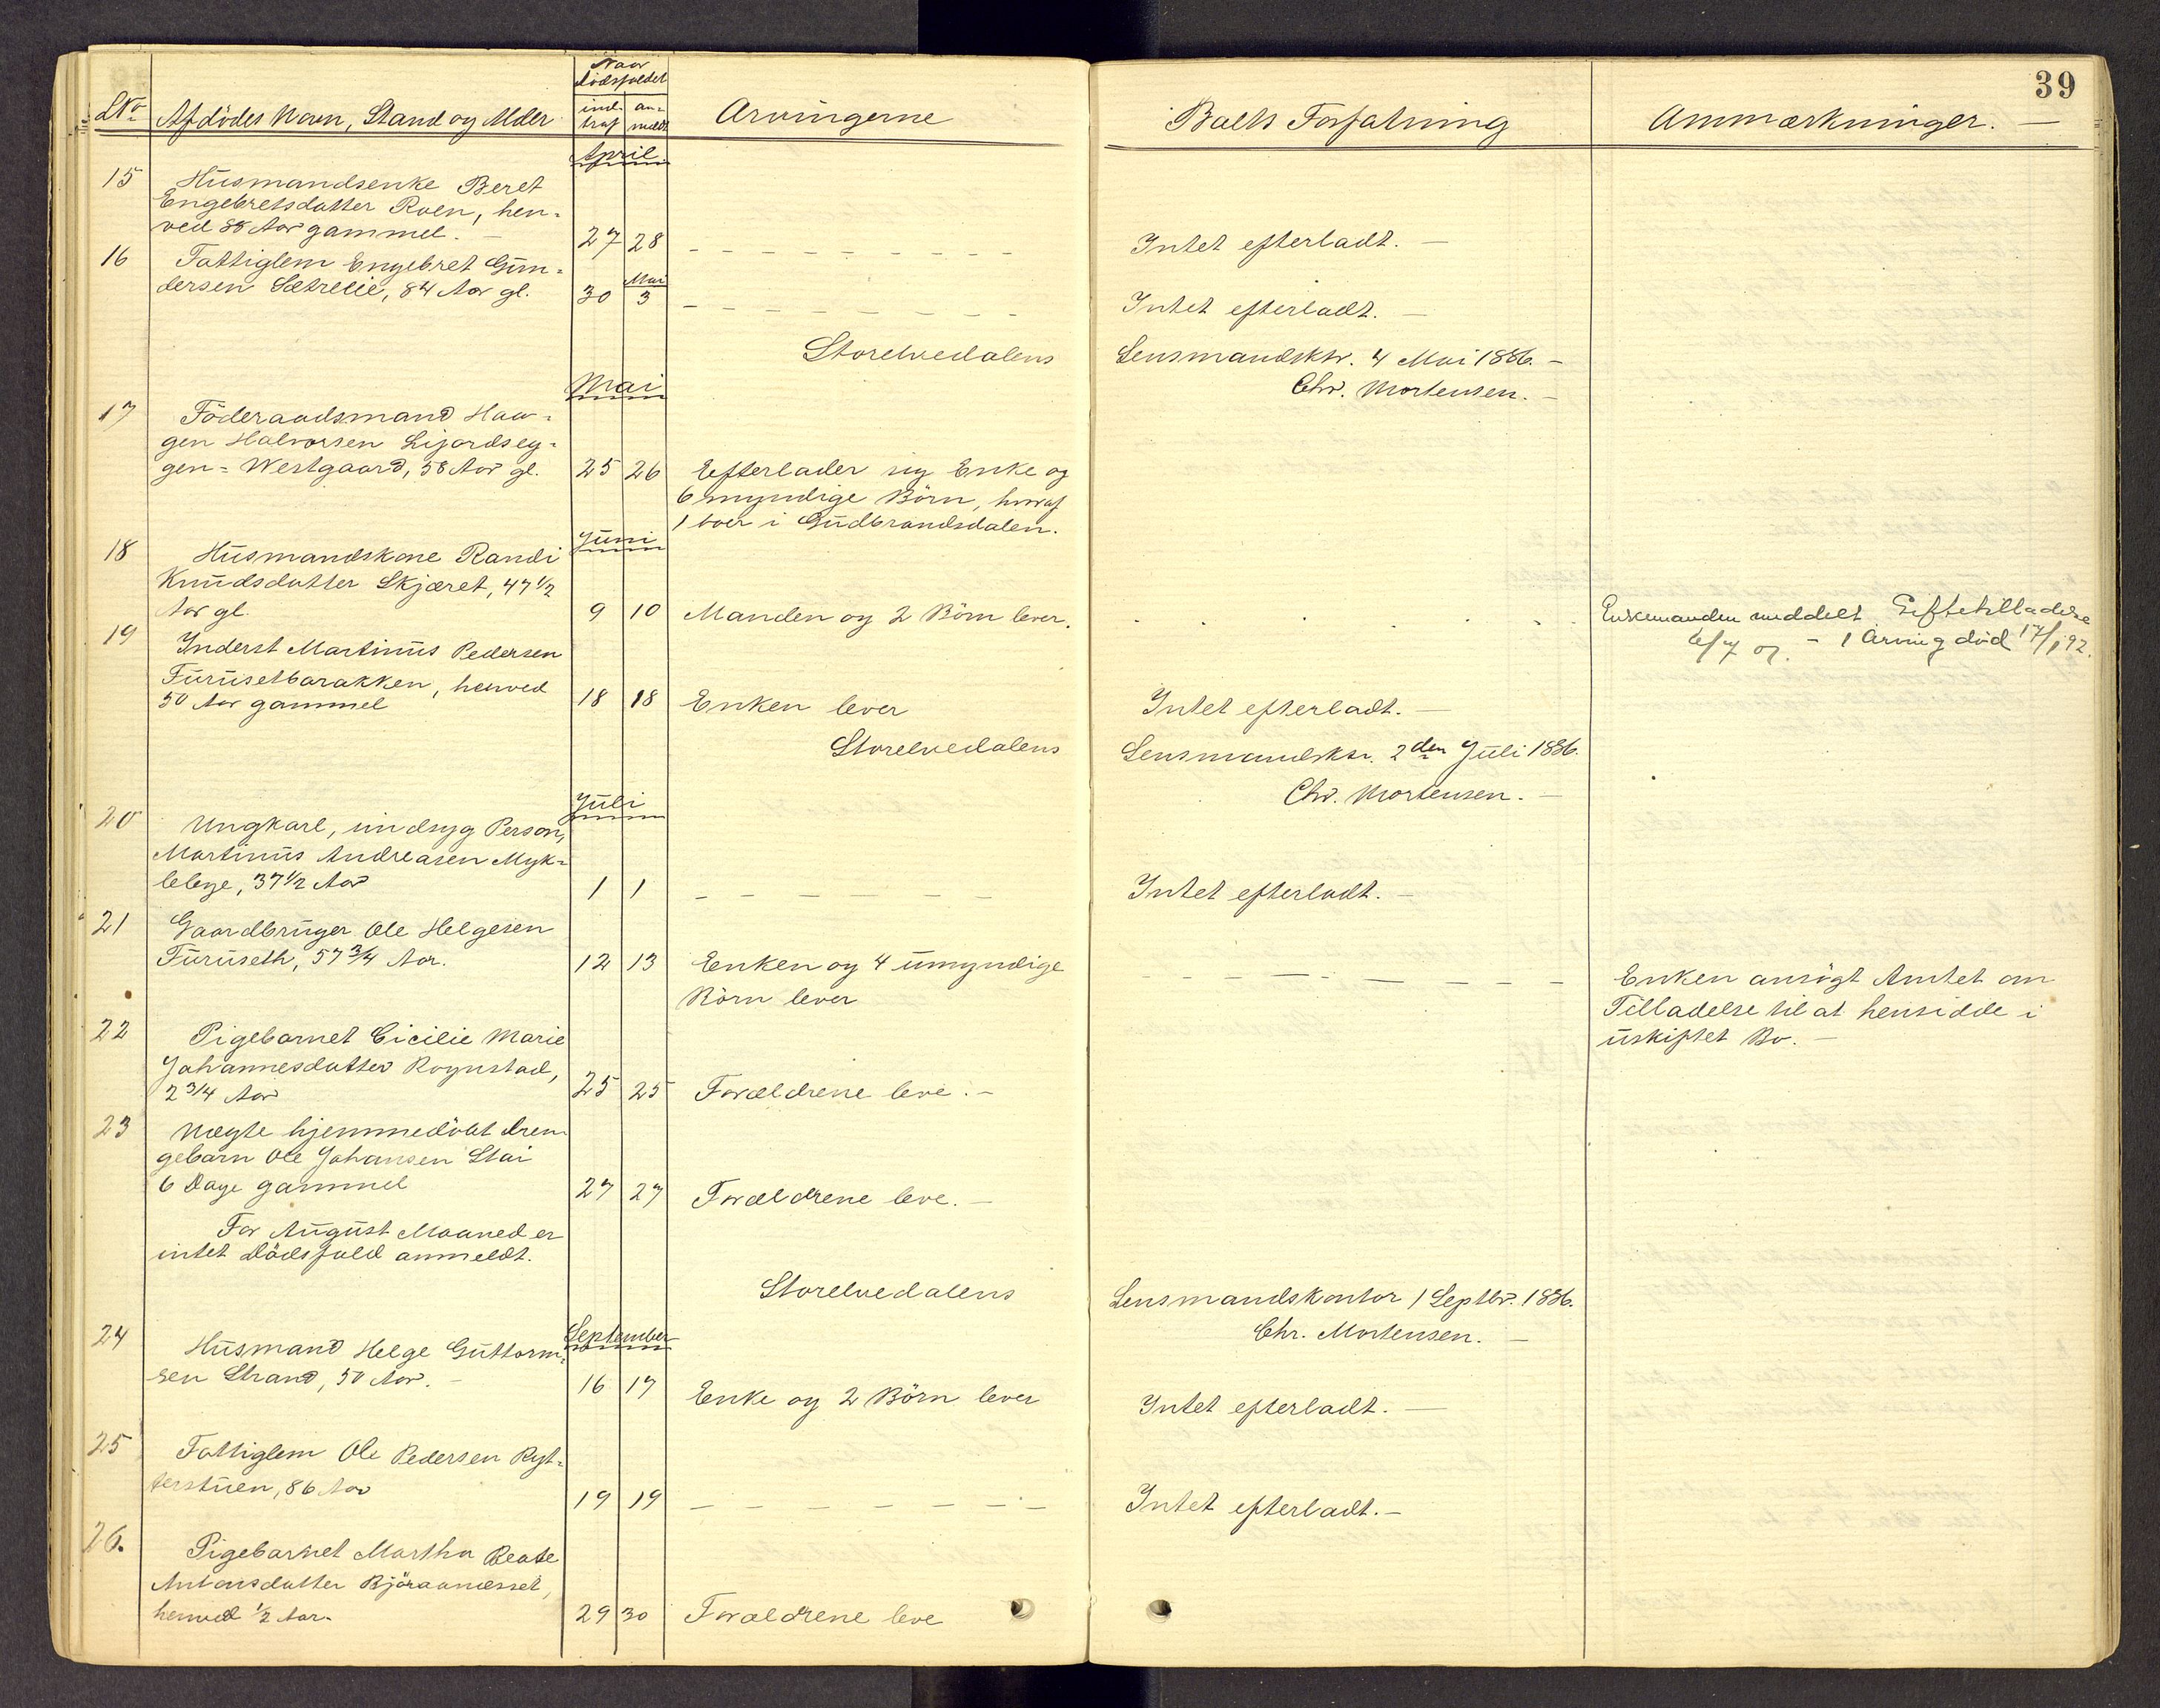 39
Naar
Dödsfaldet
LNo Afdödes Navn, Stand og Alder ind- traf an- meldt Arvingerne Boets Forfatning Anmærkninger. —
April
15 Husmandsenke Beret
Engebretsdatter Roen, hen-
ved 88 Aar gammel. — 27 28 — — — — — — Intet efterladt. —
16 Fattiglem Engebret Gun-
Mai
dersen Sætrelie, 84 Aar gl. 30 3 — — — — — — Intet efterladt. —
Storelvedalens Lensmandsktr. 4 Mai 1886. —
Chr. Mortensen. —
Mai
17 Föderaadsmand Haa-
gen Halvorsen Lijordseg-
gen = Westgaard, 58 Aar gl. 25 26 Efterlader sig Enke og
6 myndige Börn, hvoraf
1 boer i Gudbrandsdalen.
Juni
18 Husmandskone Randi
Knudsdatter Skjæret, 47 1/2
Aar gl. 9 10 Manden og 2 Börn lever. Enkemanden meddelt Giftetilladelse
— 1 Arving död 17/1 92.
19 Inderst Martinus Pedersen
Furusetbarakken, henved
50 Aar gammel 18 18 Enken lever Intet efterladt. —
Storelvedalens Lensmandsktr. 2den Juli 1886.
Chr. Mortensen. —
Juli
20 Ungkarl, sindsyg Person,
Martinus Andreasen Myk-
lebye, 37 1/2 Aar 1 1 — — — — — — Intet efterladt. —
21 Gaardbruger Ole Helgesen
Furuseth, 57 3/4 Aar. 12 13 Enken og 4 umyndige — — — — — — Enken ansögt Amtet om
Börn lever Tilladelse til at hensidde i
uskiftet Bo. —
22 Pigebarnet Cicilie Marie
Johannesdatter Rognstad,
2 3/4 Aar 25 25 Forældrene leve. —
23 Nægte hjemmedöbt Dren-
gebarn Ole Johansen Stai
6 Dage gammel 27 27 Forældrene leve. —
For August Maaned er
intet Dödsfald anmeldt.
Storelvedalens Lensmandskontor 1 Septbr. 1886.
Chr. Mortensen. —
September
24 Husmand Helge Guttorm-
sen Strand, 50 Aar. — 16 17 Enke og 2 Börn lever Intet efterladt. —
25 Fattiglem Ole Pedersen Ryt-
terstuen, 86 Aar 19 19 — — — — — — Intet efterladt. —
26. Pigebarnet Martha Beate
Antonsdatter Björaanæsset,
henved 1/2 Aar. 29 30 Forældrene leve